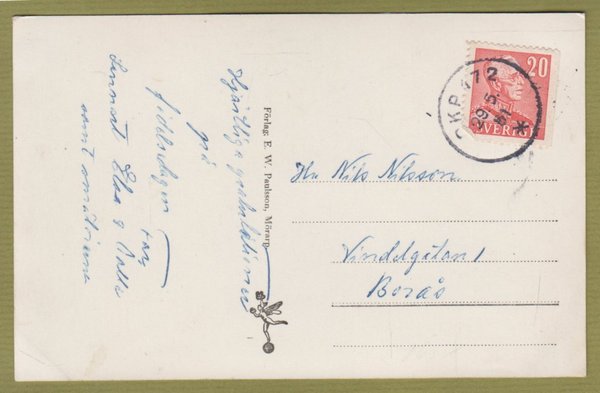 Hjärtliga gratulationer
på
födelsedagen
från
Lennart Elsa &
samt småttingarna
Förlag: E. W. Paulsson, Mörarp
20
SVERIGE
PKP 472
Hr Nils Nilsson
Vindelgatan 1
Borås